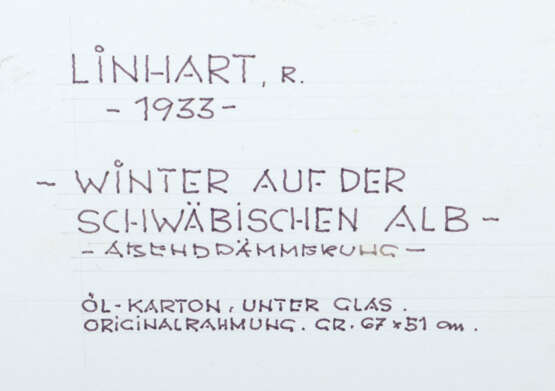 LINHART, R.
- 1933 -
- WINTER AUF DER
SCHWÄBISCHEN ALB -
- ABENDDÄMMERUNG -
ÖL-KARTON, UNTER GLAS.
ORIGINALRAHMUNG. GR. 67 x 51 cm.